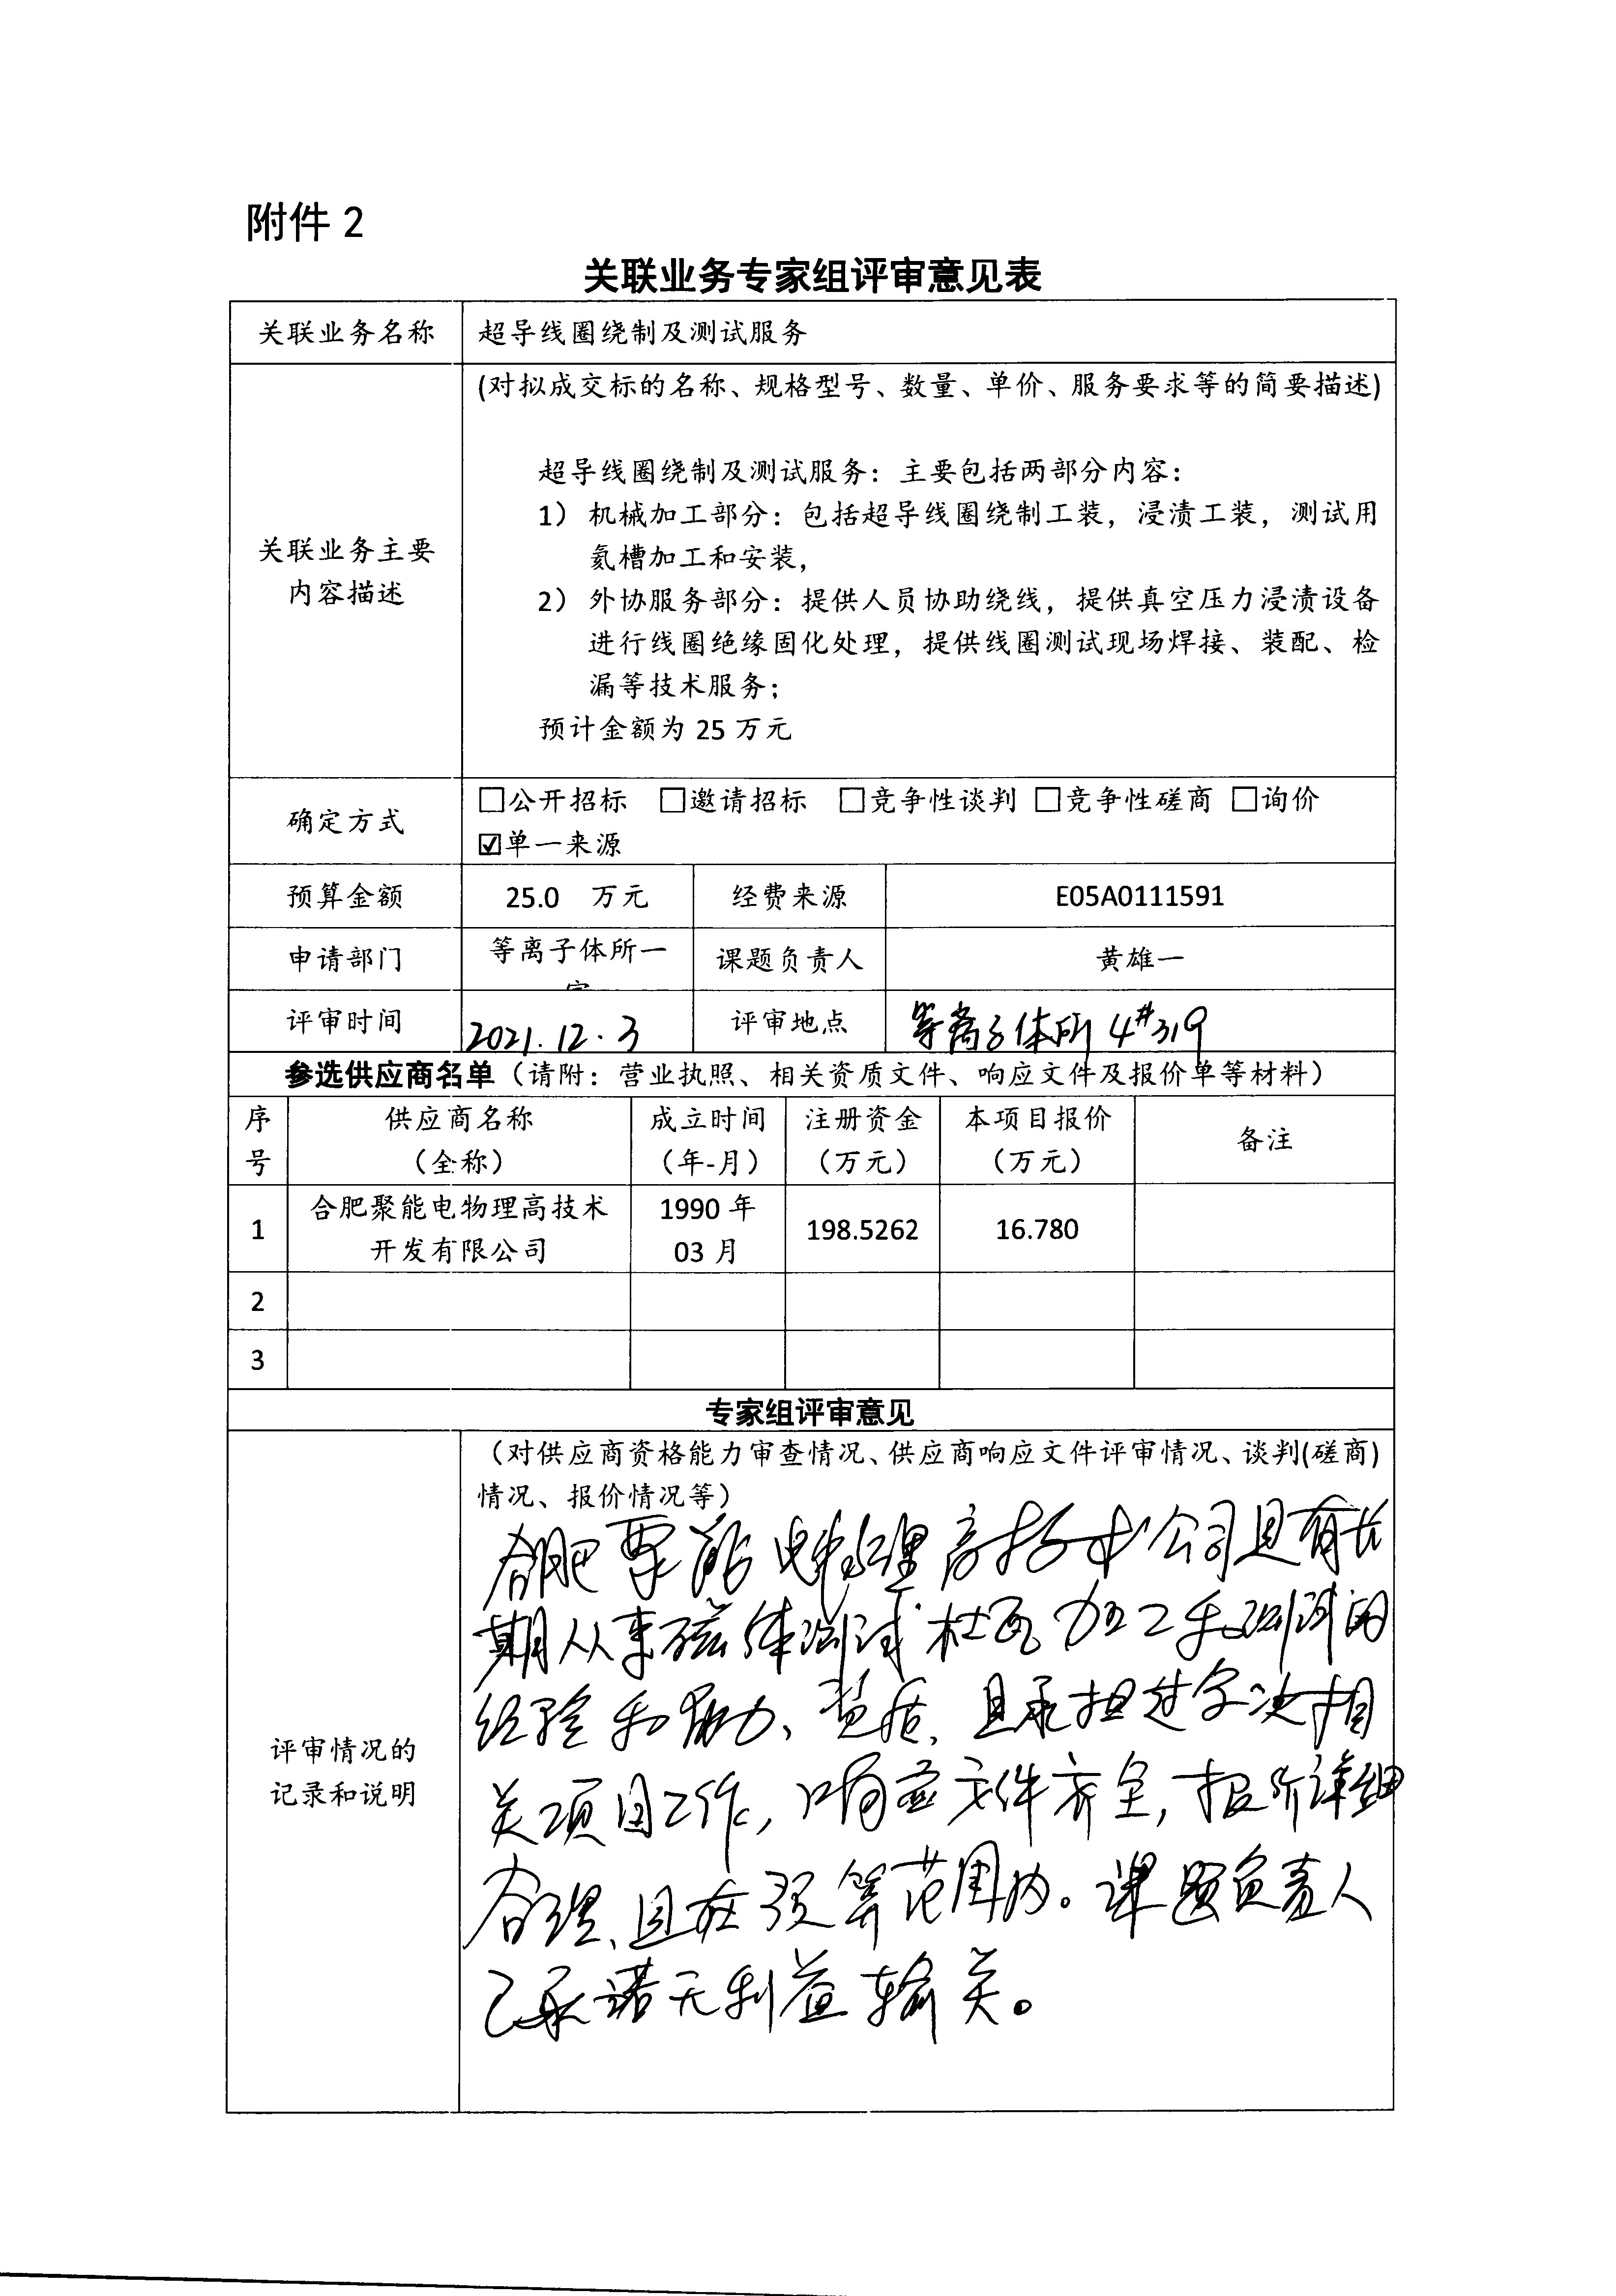 附件 2
关联业务专家组评审意见表
关联业务名称 超导线圈绕制及测试服务
(对拟成交标的名称、规格型号、数量、单价、服务要求等的简要描述)
关联业务主要
内容描述
超导线圈绕制及测试服务：主要包括两部分内容：
1） 机械加工部分：包括超导线圈绕制工装，浸渍工装，测试用
氦槽加工和安装，
2） 外协服务部分：提供人员协助绕线，提供真空压力浸渍设备
进行线圈绝缘固化处理，提供线圈测试现场焊接、装配、检
漏等技术服务；
预计金额为 25 万元
确定方式
□公开招标 □邀请招标 □竞争性谈判 □竞争性磋商 □询价
☑单一来源
预算金额 25.0 万元 经费来源 E05A0111591
申请部门 等离子体所一 课题负责人 黄雄一
室
评审时间 2021.12.3 评审地点 等离子体所 4#319
参选供应商名单（请附：营业执照、相关资质文件、响应文件及报价单等材料）
序 供应商名称 成立时间 注册资金 本项目报价 备注
号 （全称） （年-月） （万元） （万元）
1 合肥聚能电物理高技术 1990 年 198.5262 16.780
开发有限公司 03 月
2
3
专家组评审意见
（对供应商资格能力审查情况、供应商响应文件评审情况、谈判(磋商)
情况、报价情况等）
评审情况的
记录和说明
合肥聚能电物理高技术公司具有长
期从事磁体测试杜瓦加工和测试的
经验和能力、资质、且承担过多次相
关项目工作，响应文件齐全，报价详细
合理、且在预算范围内。课题负责人
已承诺无利益输关。